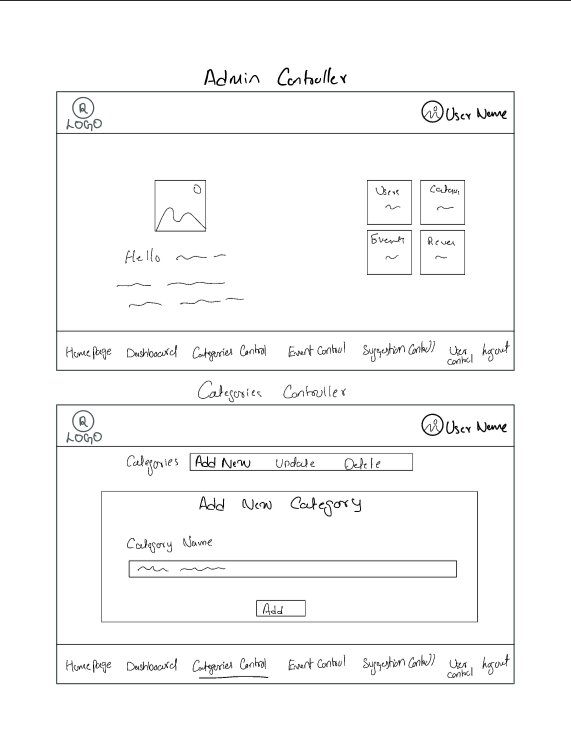 Admin Controller
R
LOGO
User Name
Users
Events
Hello
Home Page Dashboard Categories Control Event Control Suggestion Control User control logout
Categories Controller
R
LOGO
User Name
Categories Add New Update Delete
Add New Category
Category Name
Add
Home Page Dashboard Categories Control Event Control Suggestion Control User control logout